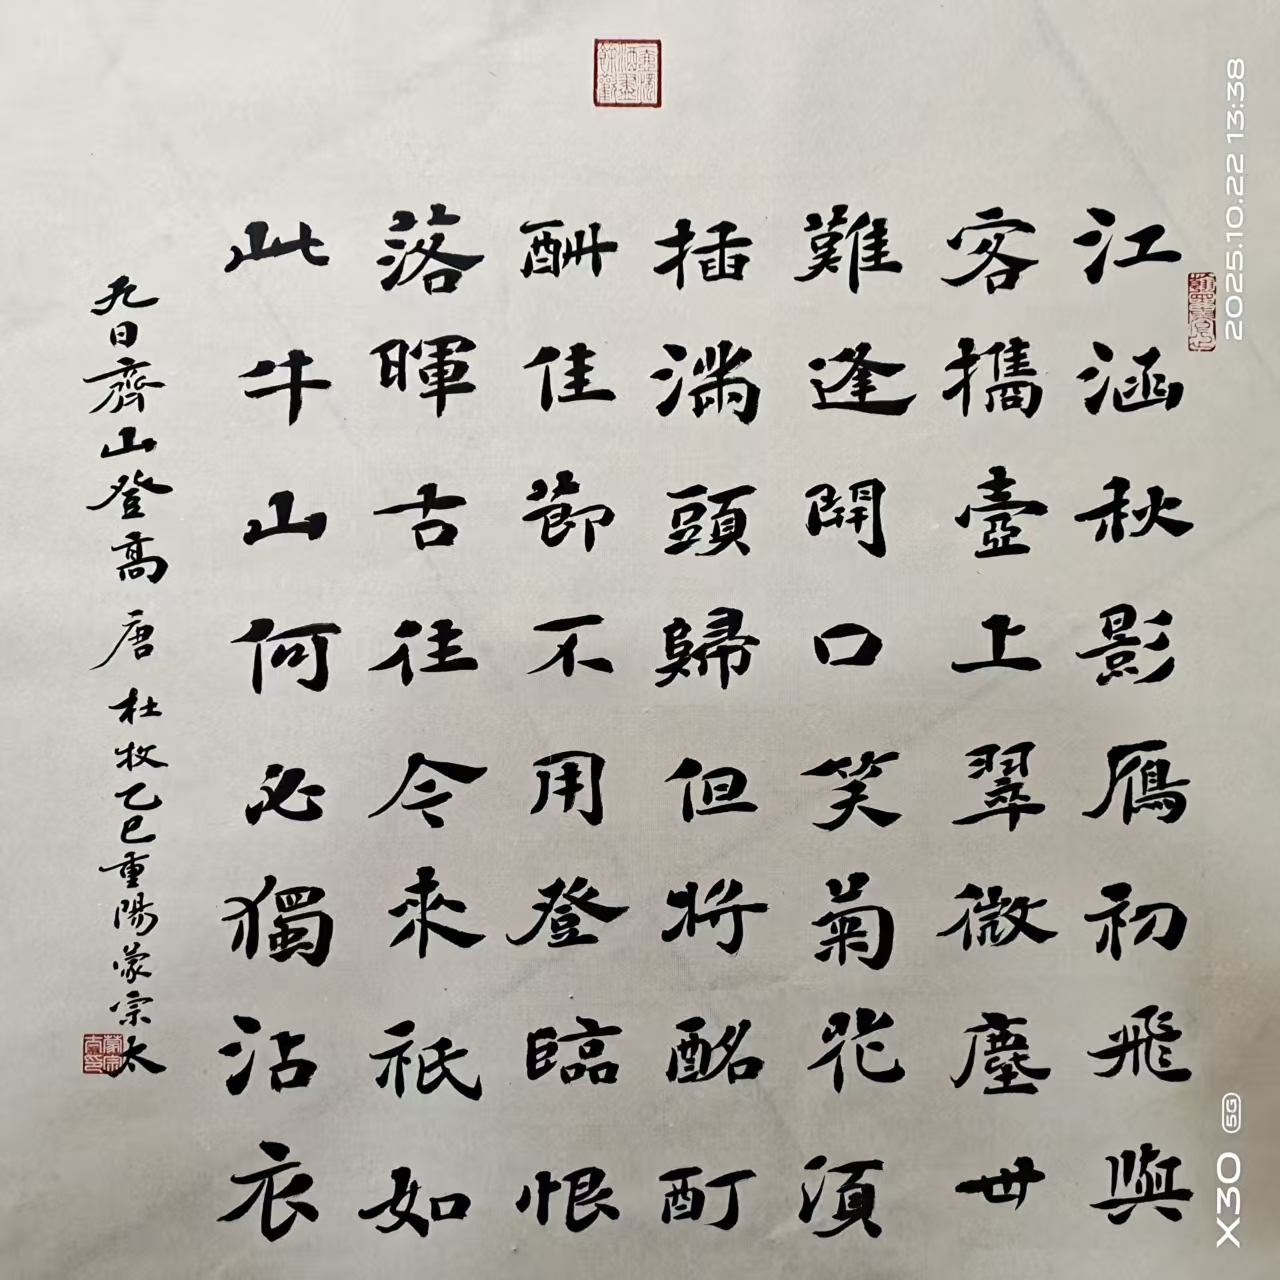 江涵秋影鴈初飛與
客攜壺上翠微塵世
難逢開口笑菊花須
插滿頭歸但將酩酊
酬佳節不用登臨恨
落暉古往今來祇如
此牛山何必獨沾衣
九日齊山登高 唐 杜牧乙巳重陽蒙宗太
蒙宗太印
2025.10.22 13:38
X30 5G